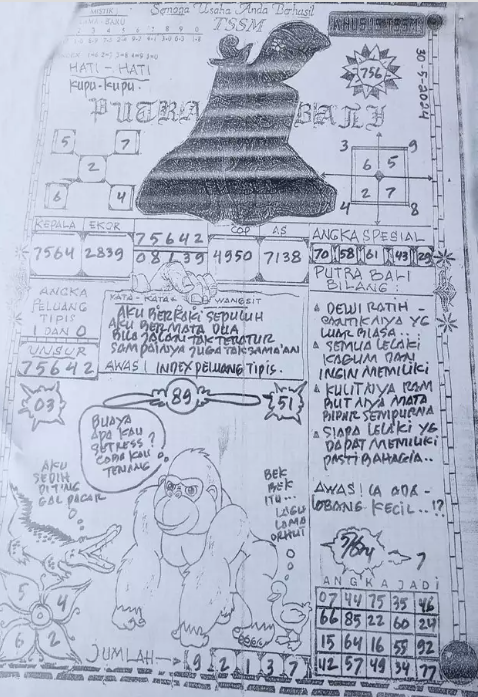 MISTIK
Semoga Usaha Anda Berhasil
TSSM
HATI - HATI
KUPU - KUPU.
756
30-5-2024
PUTRA BALI
5 7
2
6 4
3 9
6 5
2 7
4 8
KEPALA EKOR
7564 2839
75642
COP AS
4950 7138
ANGKA SPESIAL
70 58 61 43 29
ANGKA
PELUANG
TIPIS
1 DAN 0
UNSUR
75642
KATA - KATA WANGSIT
AKU BERKAKI SEPULUH
AKU BERMATA DUA
BILA JALAN TAK TERATUR
SAMPAINYA JUGA TAK SAMA'AN
AWAS! INDEX PELUANG TIPIS.
PUTRA BALI
BILANG:
DEWI RATIH -
CANTIKNYA YG
LUAR BIASA..
SEMUA LELAKI
KAGUM DAN
INGIN MEMILIKI
KULITNYA RAM
BUTNYA MATA
BIBIR SEMPURNA
SIAPA LELAKI YG
DAPAT MEMILIKI
PASTI BAHAGIA..
AWAS! CA ADA -
LOBANG KECIL..!?
03
89
51
BUAYA
ADA KAU
SETRESS?
COBA KAU
TENANG
AKU
SEDIH
DITING
GAL PACAR
BEK
BEK
ITU...
LAGU
LAMA
5 4
6 2
7
ANGKA JADI
07 44 75 35 46
66 85 22 60 24
15 64 16 55 92
42 57 49 34 77
JUMLAH 9 2 1 3 7